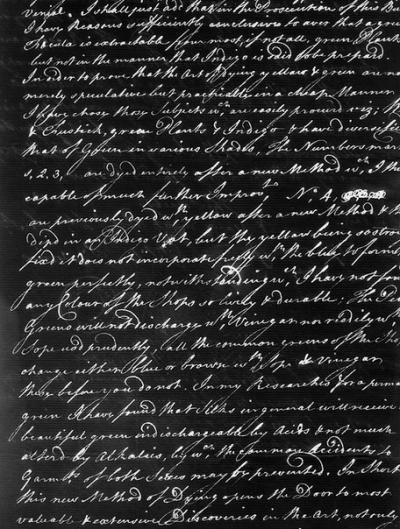 venial. I shall just add that in the Prosecution of this Bu
I have Reasons sufficiently conclusive to aver that a gree
Fæcula is extractable from most, if not all, green Plants
but not in the manner that Indigo is said to be prepar'd.
In order to prove that the Art of Dying yellow & green are no
merely speculative but practicable in a cheap Manner
I have chose those Subjects wch are easily procured viz;
& Caustick, green Plants & Indigo & have diversifie
that of Green in various Shades. The Numbers mar
1, 2, 3, are dyed entirely after a new Method wch I th
capable of much further Improvt. No. 4,
are previously dyed wth yellow after a new Method & th
dip'd in an Indigo Vat, but the yellow being so stron
fix'd it does not incorporate freely wth the blue to form
green perfectly, notwithstanding wch, I have not fou
any Colour of the Shops so lively & durable; The De
Greens will not discharge wth Vinegar nor readily wth
Sope used prudently, all the common greens of the Sho
change either blue or brown wth Sope & Vinegar
these before you do not. In my Researches for a perma
green I have found that Silks in general will receive
beautiful green indischargeable by Acids & not much
alter'd by Alkalies, by wch the common Accidents to
Garmts. of both Sexes may be prevented. In Short
this new Method of Dying opens the Door to most
valuable & extensive Discoveries in the Art, not only